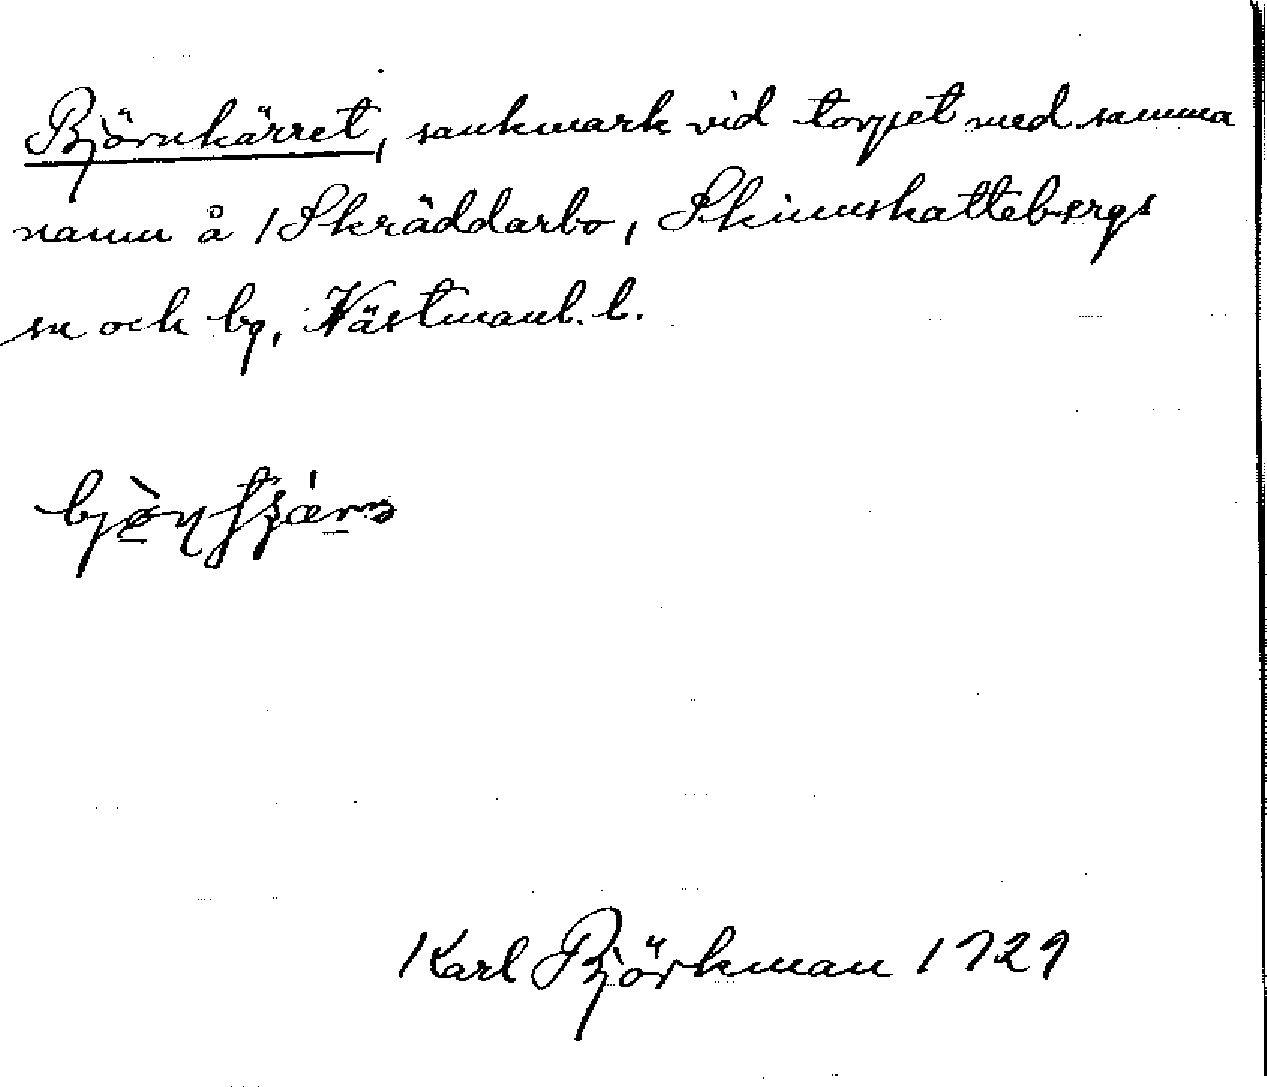 Björnkärret, sankmark vid torpet med samma
namn å Skräddarbo, Skinnskattebergs
sn och bg, Västmanl. l.
Karl Björkman 1929